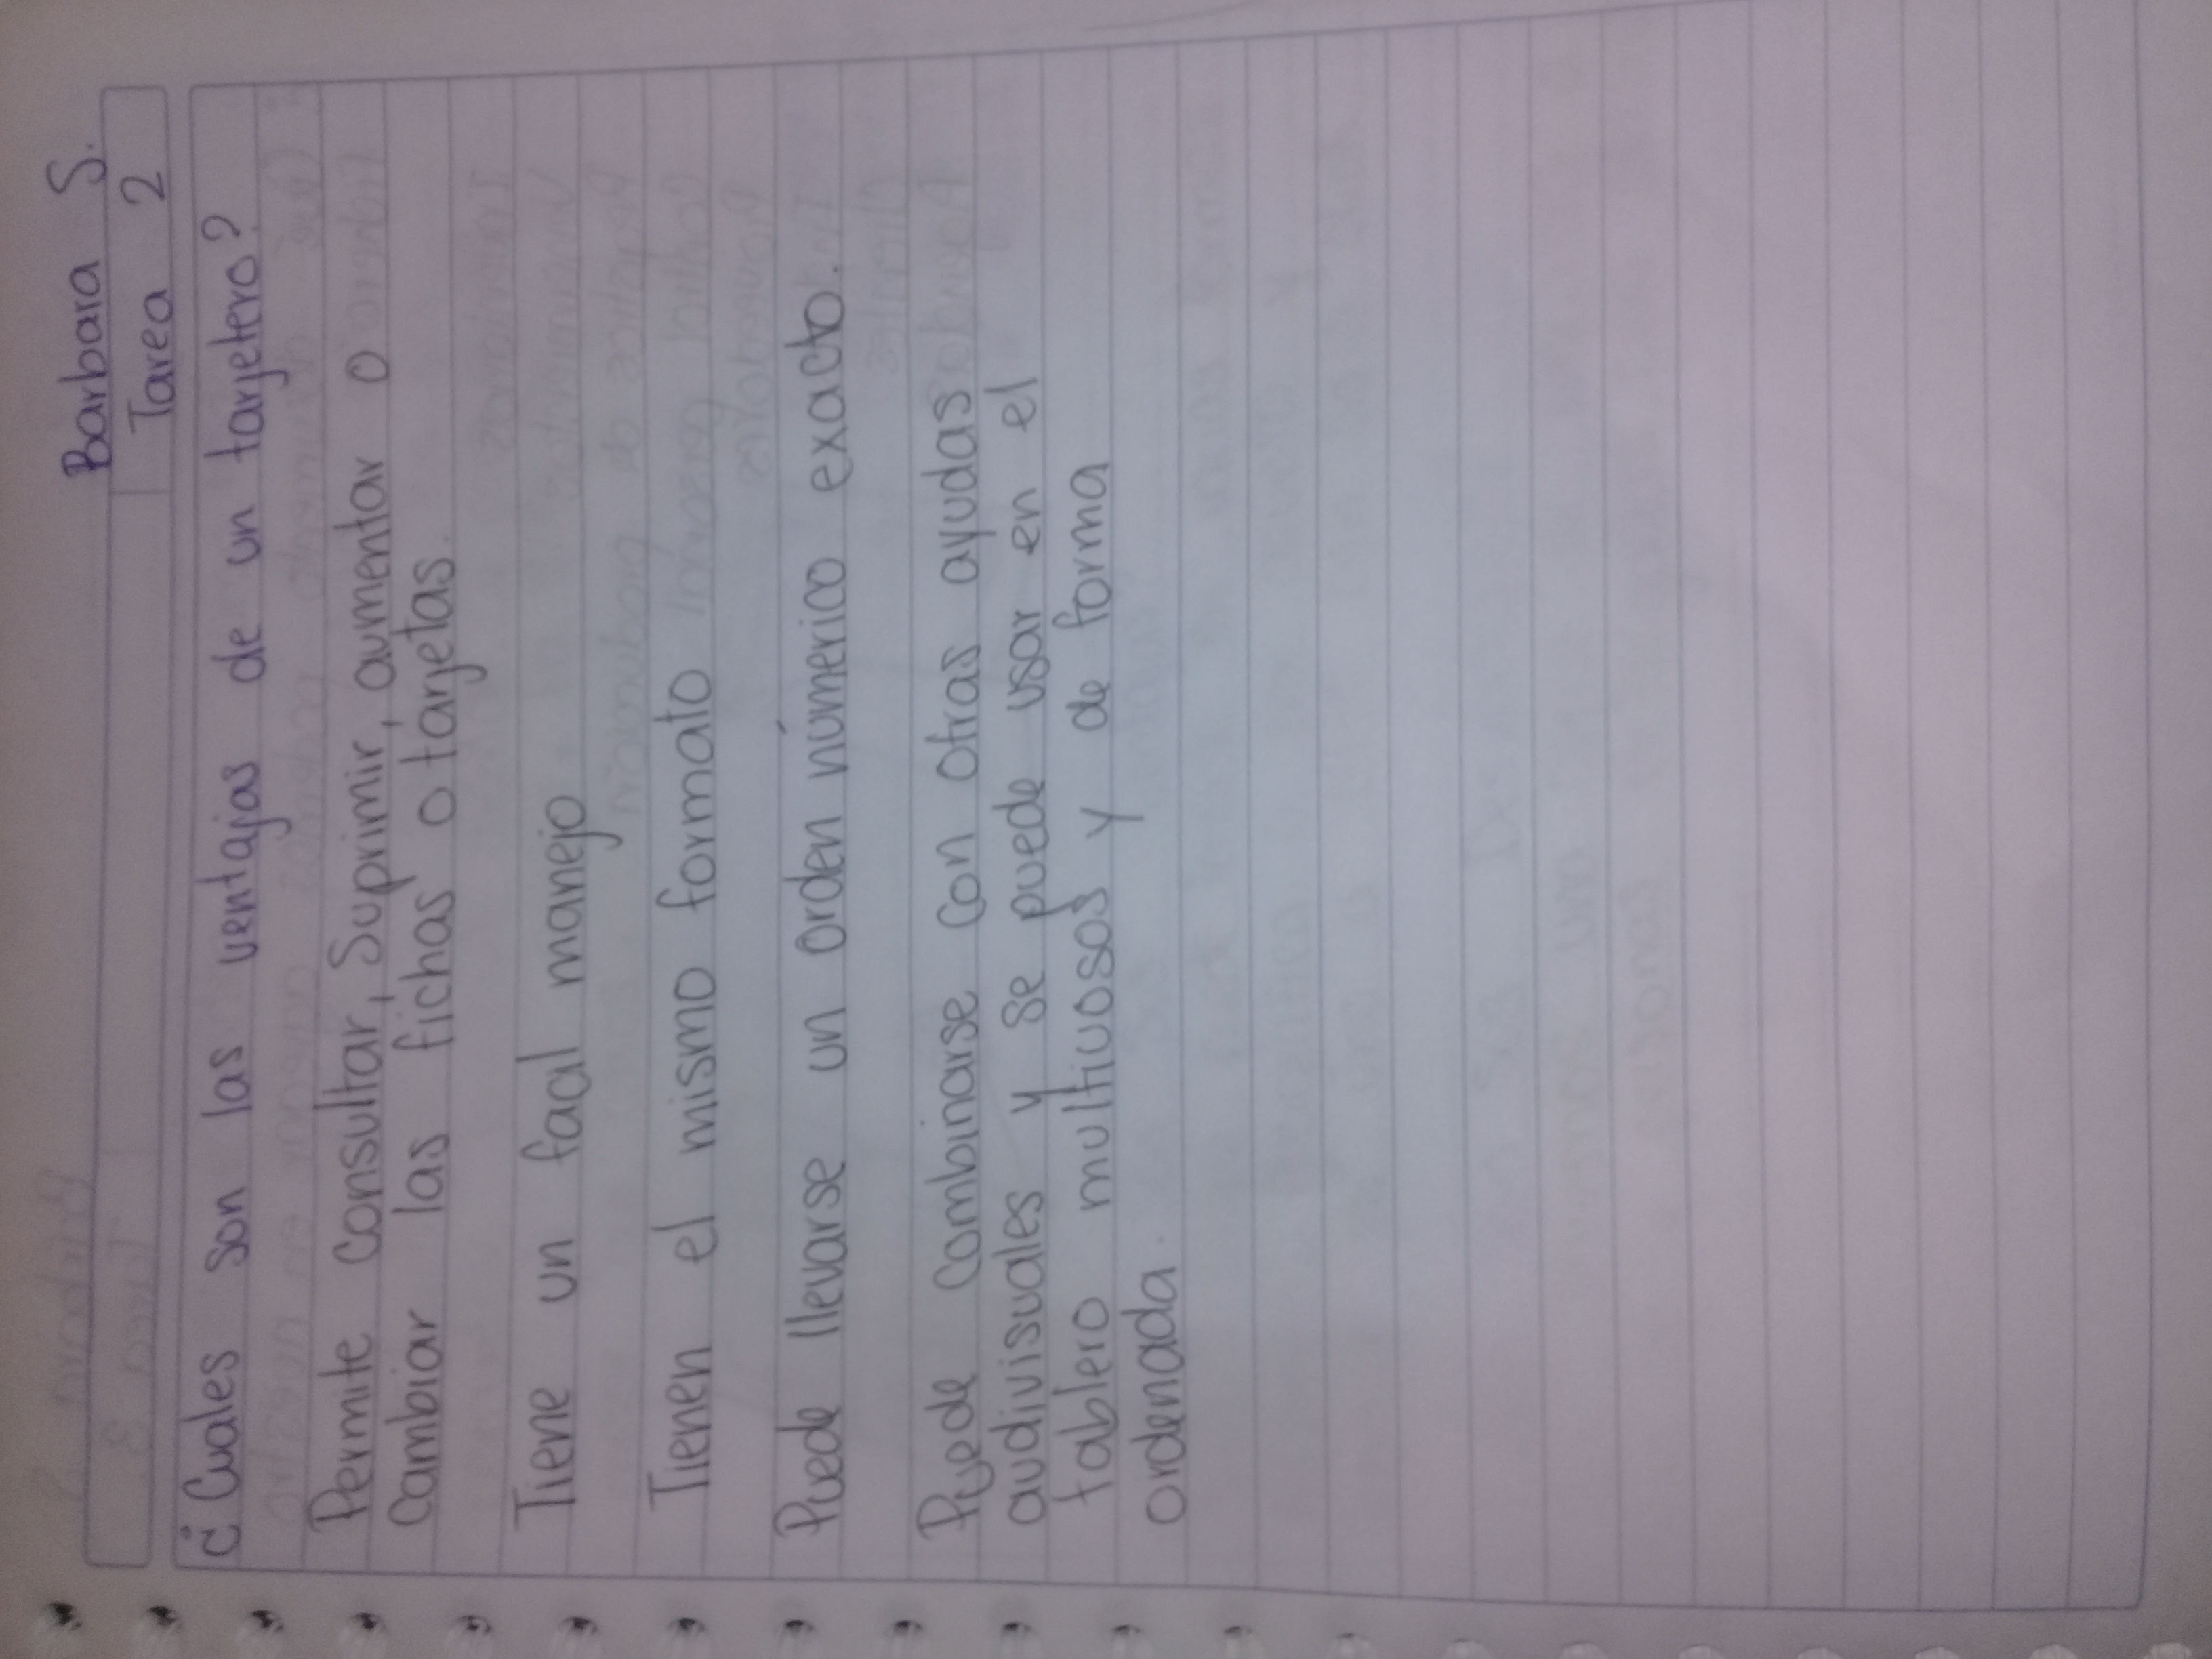 Barbara S.
Tarea 2
¿Cuales son las ventajas de un tarjetero?
Permite consultar, Suprimir, aumentar o
cambiar las fichas o tarjetas.
Tiene un facil manejo
Tienen el mismo formato
Puede llevarse un orden númerico exacto.
Puede combinarse con otras ayudas
audivisuales y se puede usar en el
tablero multiusos y de forma
ordenada.